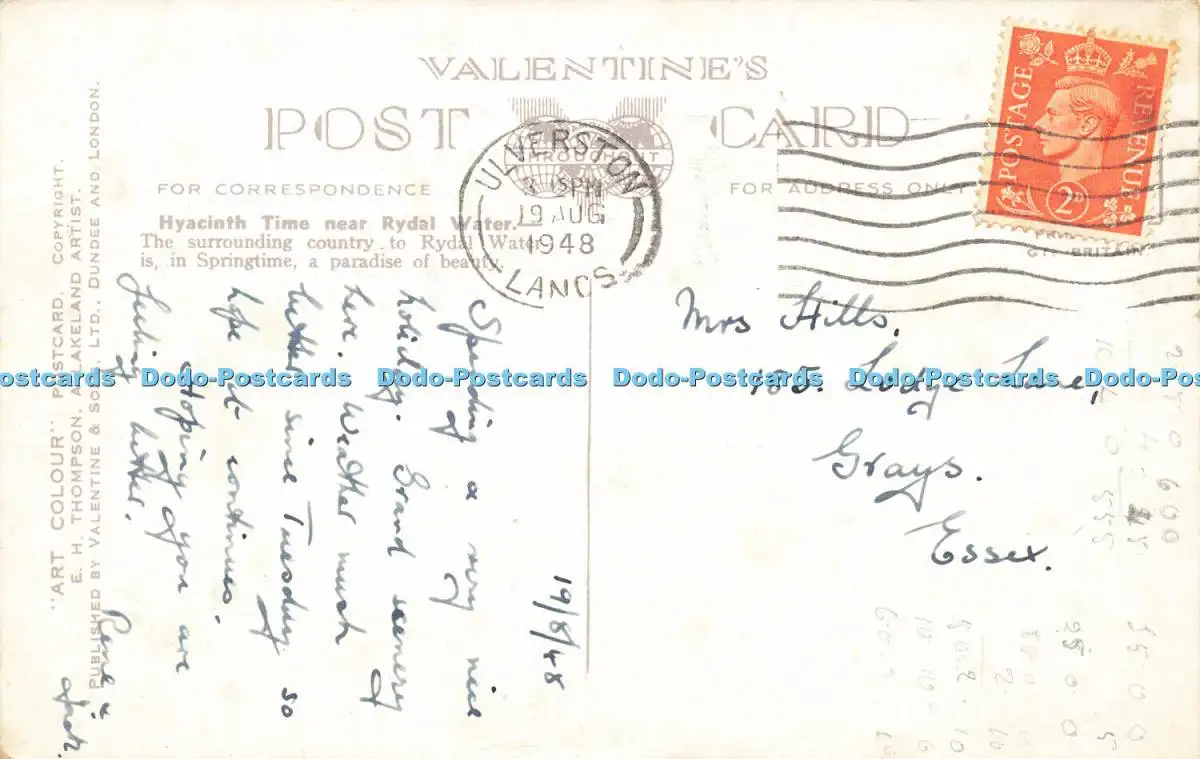 VALENTINE'S
POST CARD
FOR CORRESPONDENCE
FOR ADDRESS ONLY
Hyacinth Time near Rydal Water.
The surrounding country to Rydal Water
is, in Springtime, a paradise of beauty.
ULVERSTON
3 15PM
19 AUG
1948
LANCS
POSTAGE
REVENUE
2D
GT. BRITAIN.
"ART COLOUR" POSTCARD. COPYRIGHT.
E. H. THOMPSON, A LAKELAND ARTIST.
PUBLISHED BY VALENTINE & SONS, LTD., DUNDEE AND LONDON.
19/8/48
Spending a very nice
holiday. Grand scenery
here. Weather much
better since Tuesday so
hope it continues.
Hoping you are
feeling better.
Rene &
Mrs Hills.
155. Lodge Lane,
Grays.
Essex.
Dodo-Postcards Dodo-Postcards Dodo-Postcards Dodo-Postcards Dodo-Postcards Dodo-Postcards